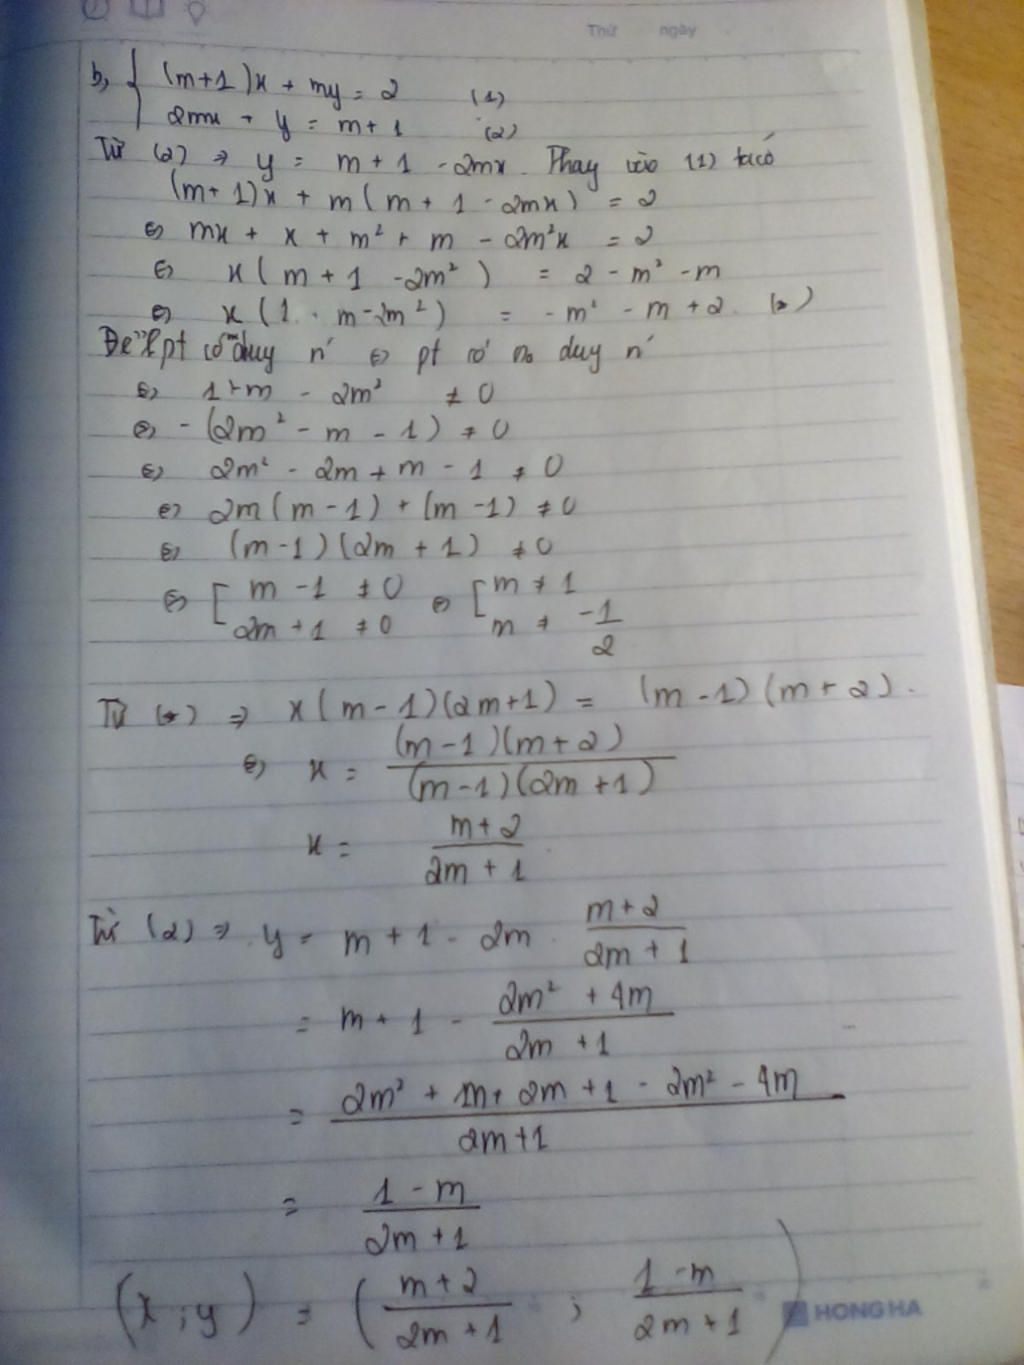 Thứ ngày
b, { (m+1)x + my = 2 (1)
2mx + y = m+1 (2)
Từ (2) ⇒ y = m + 1 - 2mx. Thay vào (1) ta có
(m+1)x + m(m + 1 - 2mx) = 2
⇔ mx + x + m² + m - 2m²x = 2
⇔ x(m + 1 - 2m²) = 2 - m² - m
⇔ x(1 + m - 2m²) = - m² - m + 2 (*)
Để hpt có duy n' ⇔ pt có no duy n'
⇔ 1 + m - 2m² ≠ 0
⇔ - (2m² - m - 1) ≠ 0
⇔ 2m² - 2m + m - 1 ≠ 0
⇔ 2m(m - 1) + (m - 1) ≠ 0
⇔ (m-1)(2m + 1) ≠ 0
⇔ [ m - 1 ≠ 0 ⇔ [ m ≠ 1
2m + 1 ≠ 0 m ≠ -1/2
Từ (*) ⇒ x(m - 1)(2m+1) = (m - 1)(m + 2).
⇔ x = (m-1)(m+2)/(m-1)(2m+1)
x = m+2/2m + 1
Từ (2) ⇒ y = m + 1 - 2m . m+2/2m + 1
= m + 1 - 2m² + 4m/2m + 1
= 2m² + m + 2m + 1 - 2m² - 4m/2m+1
= 1 - m/2m + 1
(x ; y) = (m+2/2m + 1 ; 1-m/2m+1)
HONG HA